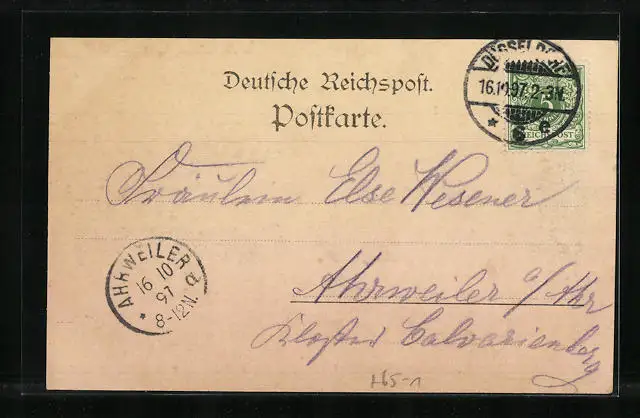 Deutsche Reichspost.
Postkarte.
DÜSSELDORF
16.10.97. 2-3N
* 6 c
REICHSPOST
Fräulein Else Wesener
AHRWEILER a
16 10
97
* 8-12N.
Ahrweiler a/Ahr
Kloster Calvarienberg
L65-1